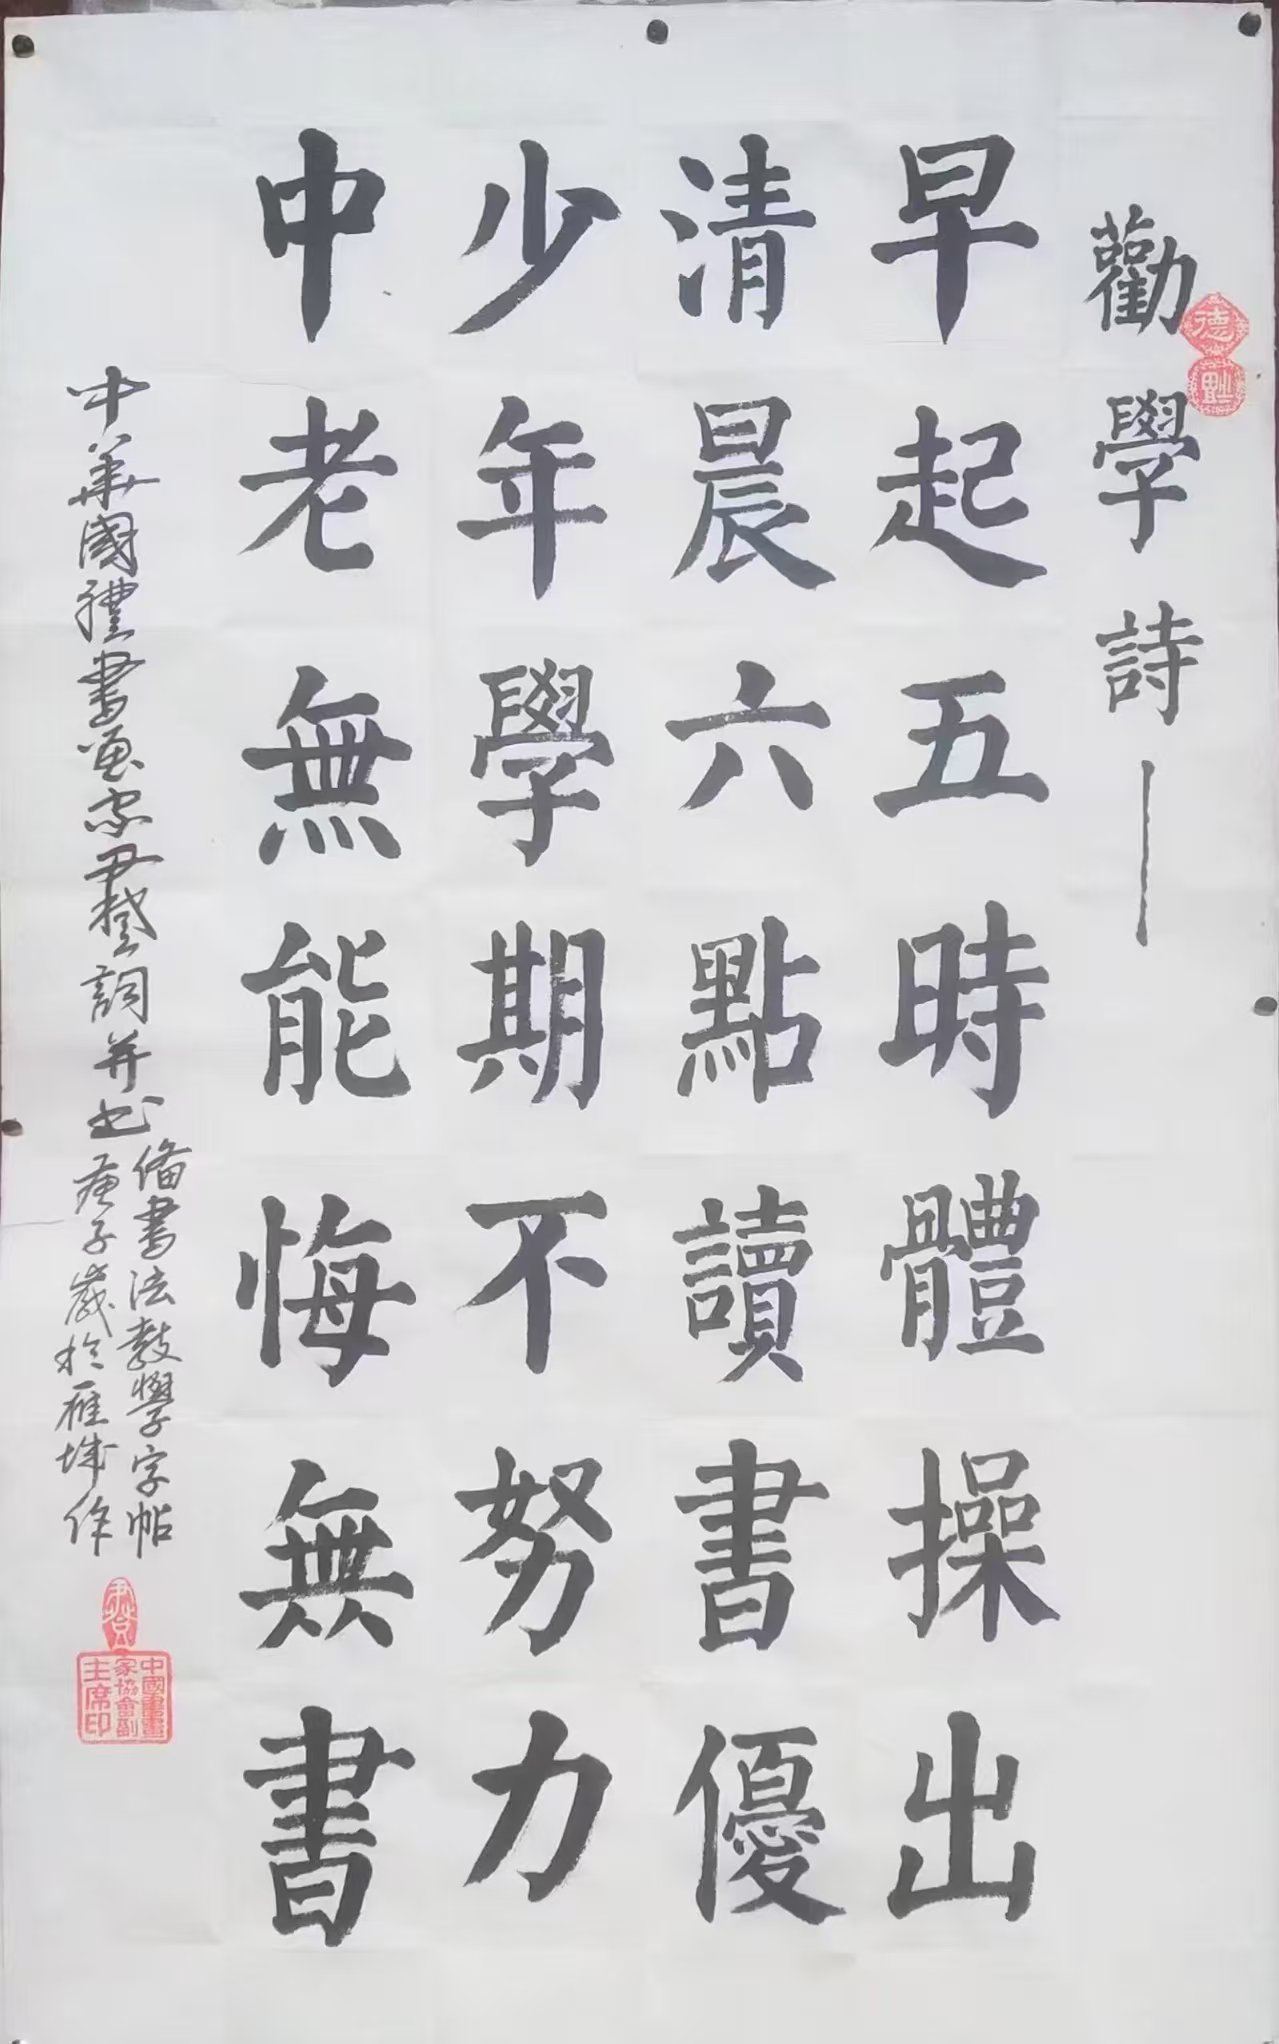 勸學詩——
早起五時體操出
清晨六點讀書優
少年學期不努力
中老無能悔無書
中華國禮書畫家尹楚詞并书
備書法教學字帖
庚子歲於雁城作
德
中國書畫
家協會副
主席印